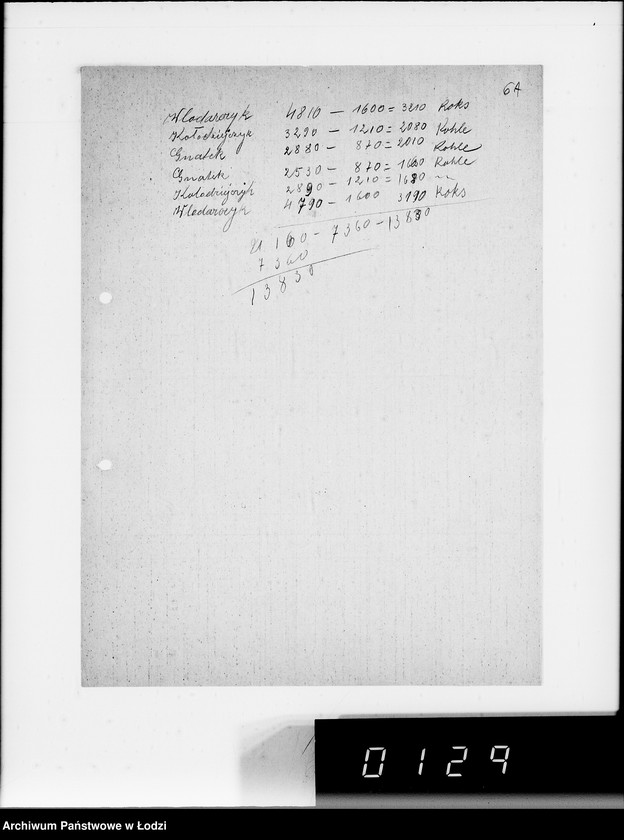 6A
Włodarczyk 4810 — 1600 = 3210 Koks
Kołodziejczyk 3290 — 1210 = 2080 Kohle
Gnatek 2880 — 870 = 2010 Kohle
Gnatek 2530 — 870 = 1660 Kohle
Kołodziejczyk 2890 — 1210 = 1680 "
Włodarczyk 4790 — 1600 3190 Koks
21160 — 7360 — 13830
7360
13830
0129
Archiwum Państwowe w Łodzi